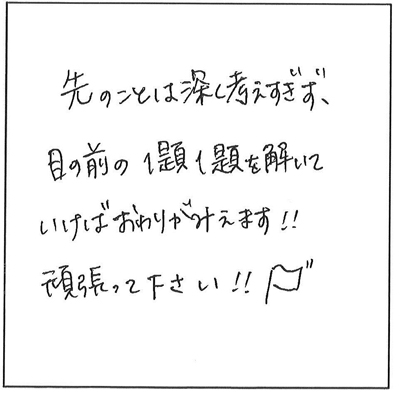 先のことは深く考えすぎず、
目の前の1題1題を解いて
いけばおわりがみえます!!
頑張って下さい!!